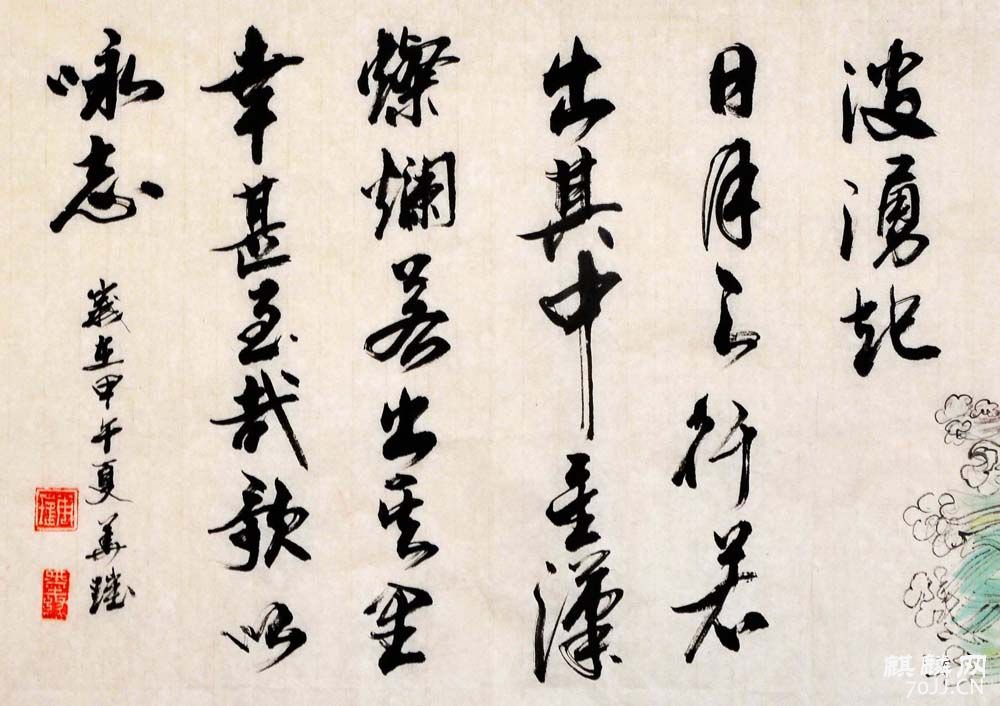 波湧起
日月之行若
出其中星漢
燦爛若出其里
幸甚至哉歌以
咏志
歲在甲午夏
麒麟网
70JJ.CN